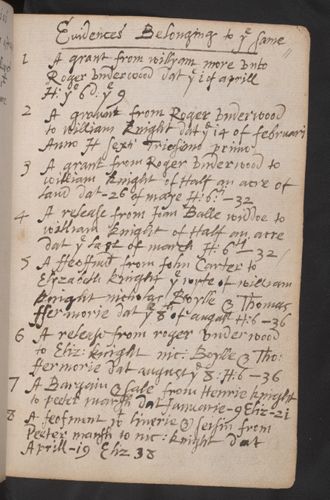 Evidences Belonging to yᵉ same
1 A grant from willyam more vnto
Roger vnderwood dat yᵉ i of aprill
H: yᵉ 6ᵈ. yᵉ 9
2 A graunt from Roger vnderwood
to william knight dat yᵉ i4 of februari
Anno H sexti Tricesimo primo
3 A grant from Roger vnderwood to
william knight of Half an acre of
land dat-26 of maye H:6ᵗ-32
4 A release from Balle widdoe to
william knight of Half an acre
dat yᵉ of march H:6ᵗ-32
5 A feoffmt from John Carter to
Elyzabeth knight yᵉ wife of william
knight nicholas Boylle & Thomas
Hermorie dat yᵉ 8 of august H:6-36
6 A release from roger vnderwood
to Eliz: knight nic: Boylle & Tho:
Hermorie dat august yᵉ 8: H:6-36
7 A Bargain & sale from Henrie knight
to peeter marsh dat Januarie-9 Eliz-21
8 A feofment wᵗ liverie & seisin from
Peeter marsh to nic: knight dat
Aprill-19 Eliz 38